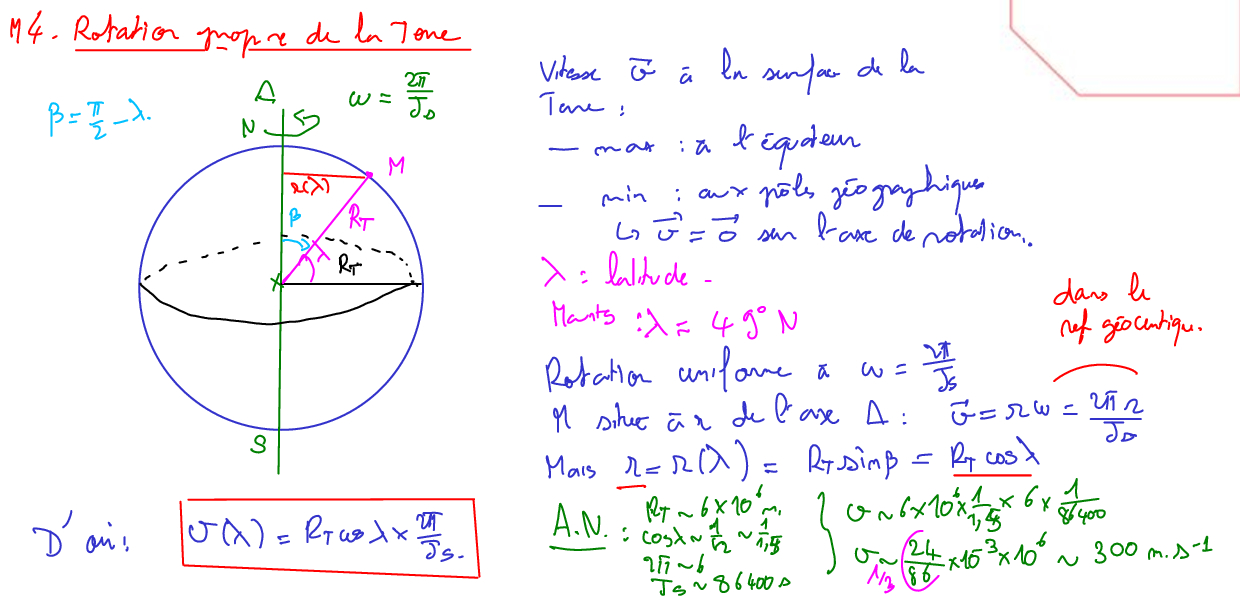 M4. Rotation propre de la Terre
β = π/2 - λ.
Δ
ω = 2π/Ts
N
M
r(λ)
β
R_T
λ
R_T
S
Vitesse v⃗ à la surface de la
Terre :
— max : à l'équateur
— min : aux pôles géographiques
↳ v⃗ = 0⃗ sur l'axe de rotation.
λ = latitude -
Mants : λ = 49° N
dans le
ref géocentrique.
Rotation uniforme à ω = 2π/Ts
M situé à r de l'axe Δ : v⃗ = rω = 2πr/Ts
Mais r = r(λ) = R_T sinβ = R_T cosλ
D'où : v(λ) = R_T cosλ × 2π/Ts.
A.N. : R_T ~ 6×10⁶ m.
cosλ ~ 1/√2 ~ 1/1,45
2π ~ 6
Ts ~ 86400 s
v ~ 6×10⁶ × 1/1,45 × 6 × 1/86400
v ~ 24/86 × 10⁻³ × 10⁶ ~ 300 m.s⁻¹
1/3